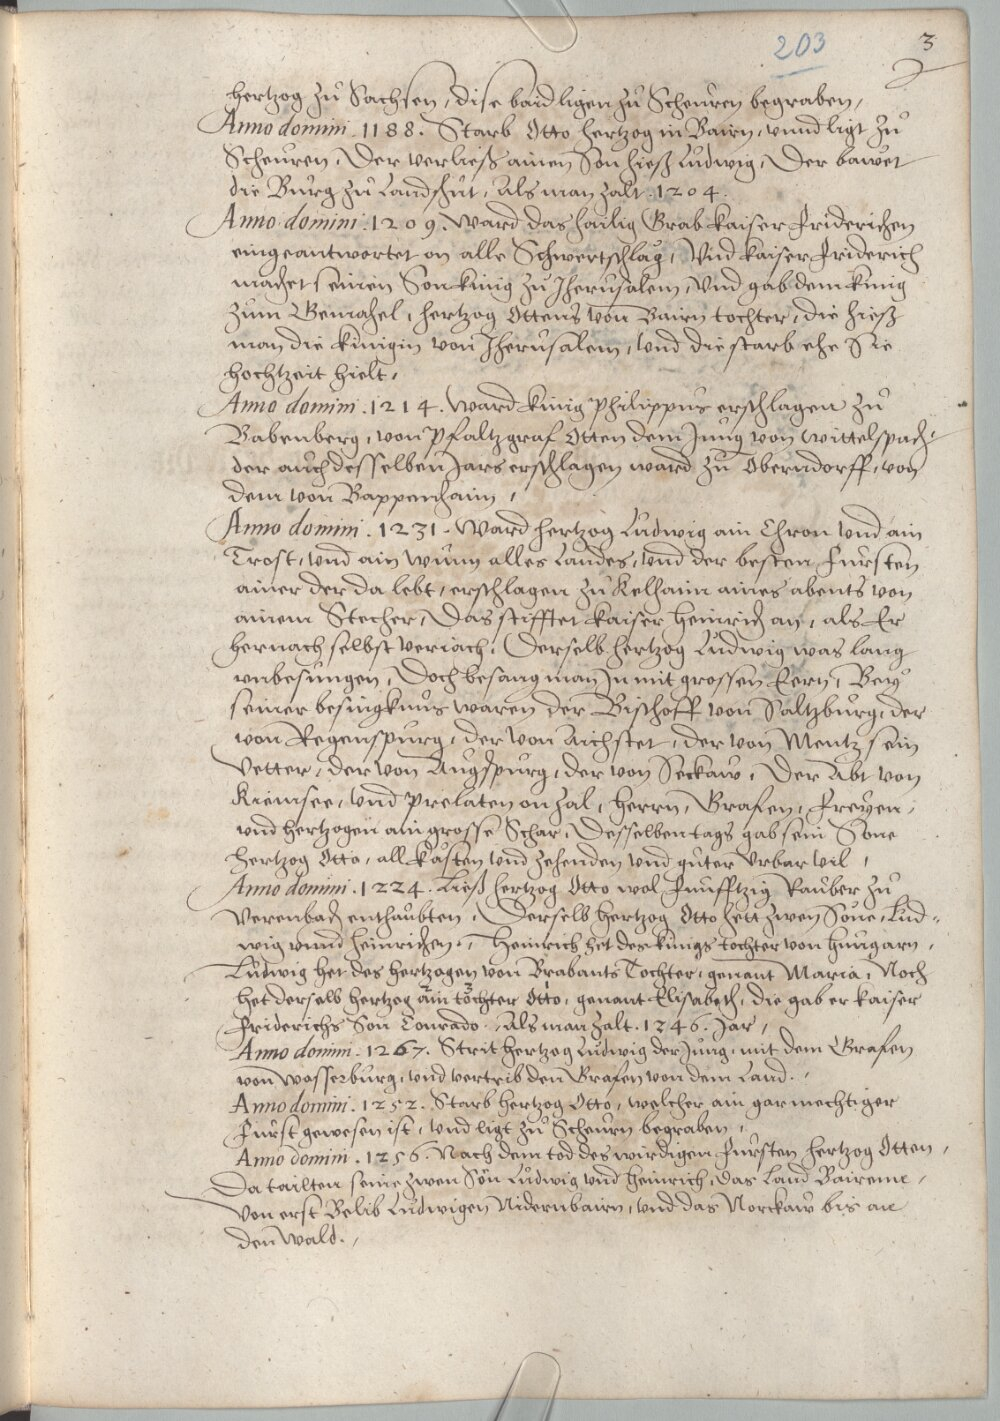 203
3
hertzog zů Sachsen, dise baid ligen zů Scheuren begraben,
Anno domini .1188. Starb Otto hertzog in Bairn, vnnd ligt zů
Scheuren. Der verließ ainen Son hieß Ludwig, Der bawet
die Burg zů Landshut, Als man zalt .1204.
Anno domini .1209. Ward das hailig Grab kaiser Friderichen
eingeantwortet on alle Schwertschlag, Vnd kaiser Friderich
machet seinen Son künig zu Jherusalem, Vnd gab dem künig
zum Gemahel, hertzog Ottens von Bairn tochter, die hieß
man die künigin von Jherusalem, vnd die starb ehe Sie
hochtzeit hielt,
Anno domini .1214. Ward künig Philippus erschlagen zů
Babenberg, von Pfaltzgraf Otten dem Jung von Wittelspach,
der auch desselben Jars erschlagen ward zů Oberndorff, von
dem von Bappenhaim,
Anno domini .1231. Ward hertzog Ludwig ain Chron vnd ain
Trost, vnd ain wunn alles Landes, vnd der besten Fürsten
ainer der da lebt, erschlagen zů Kelhaim aines abents von
ainem Stecher, Das stifftet kaiser Heinrich an, als Er
hernach selbst veriach, Derselb hertzog Ludwig was lang
vnbesungen, Doch besang man Jn mit grossen Eern, Bey
seiner besingknus waren der Bischoff von Saltzburg, der
von Regenspurg, der von Aichstet, der von Mentz sein
Vetter, der von Augspurg, der von Seckaw, Der Abt von
Kiemsee, vnd Prelaten on zal, Herrn, Grafen, Freyen,
vnd hertzogen ain grosse Schar, Desselben tags gab sein Sone
hertzog Otto, all kästen vnd zehenden vnd guter Vrbar vil,
Anno domini .1224. Ließ hertzog Otto wol Funfftzig Rauber zů
Verenbach enthaubten, Derselb hertzog Otto hett zwen Söne, Lud-
wig vnnd Heinrichen, Heinrich het des künigs tochter von Hungarn,
Ludwig het des hertzogen von Brabants Tochter, genant Maria, Noch
het derselb hertzog ain tochter Otto, genant Elisabeth, die gab er kaiser
Friderichs Son Conrado. Als man zalt .1246. Jar,
Anno domini .1267. Strit hertzog Ludwig der Jung, mit dem Grafen
von Wasserburg, vnd vertrib den Grafen von dem Land.
Anno domini .1252. Starb hertzog Otto, welcher ain gar mechtiger
Fürst gewesen ist, vnd ligt zů Scheurn begraben,
Anno domini .1256. Nach dem tod des wirdigen Fürsten hertzog Otten,
Da tailten seine zwen Sön Ludwig vnd Heinrich, das Land Bairenn,
Von erst Belib Ludwigen Nidernbairn, vnd das Norckaw bis an
den Wald.